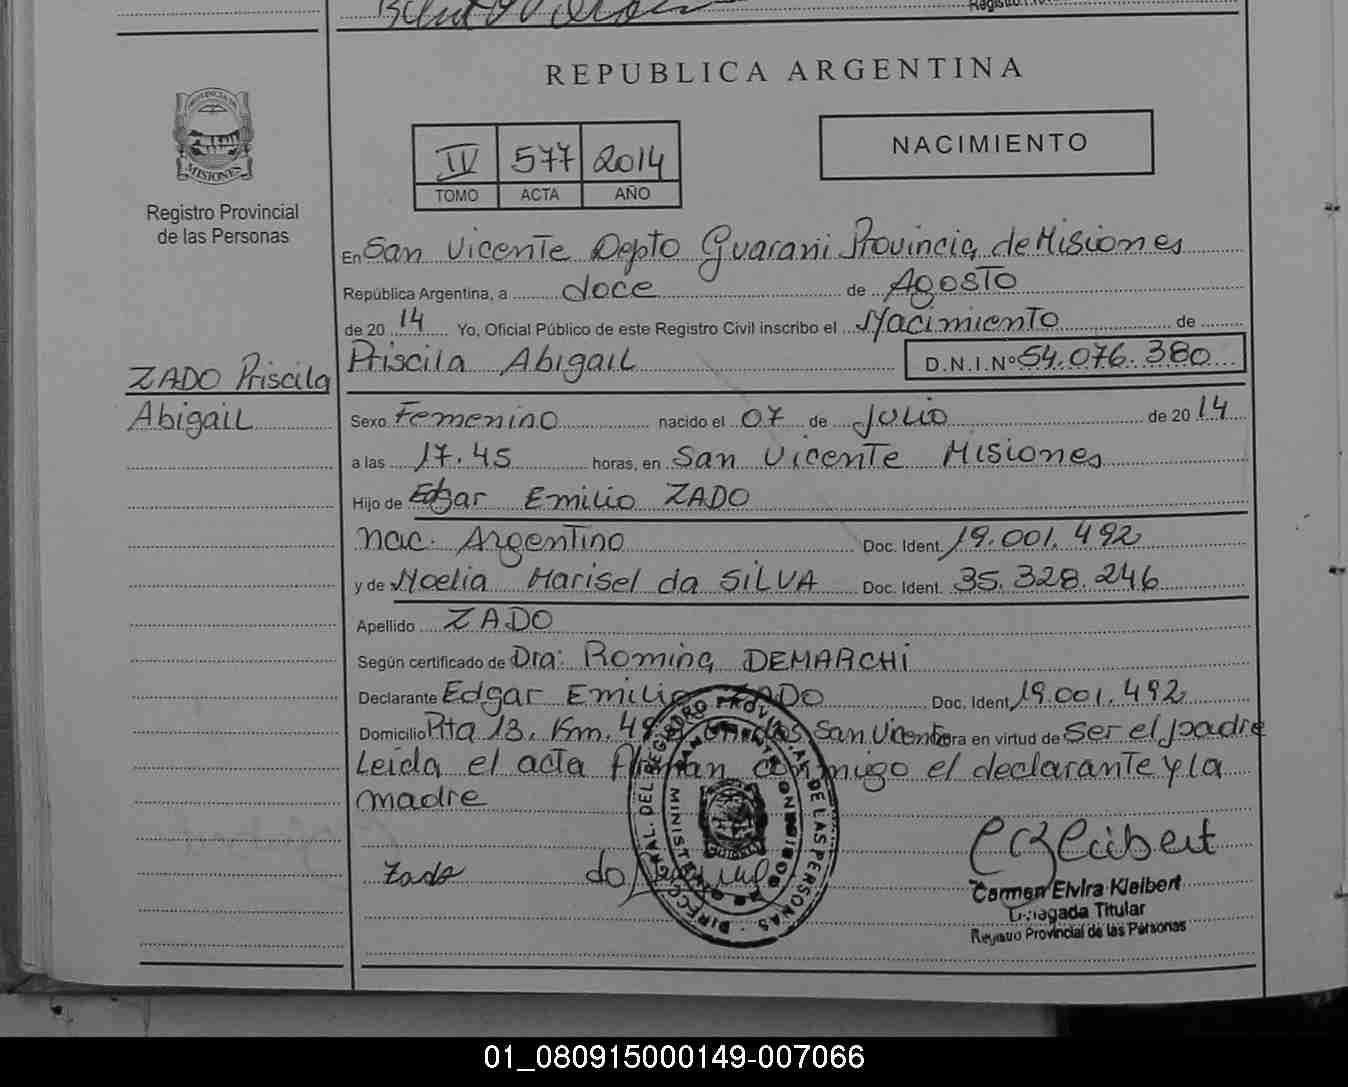 REPUBLICA ARGENTINA
PROVINCIA DE
MISIONES
Registro Provincial
de las Personas
IV 577 2014
TOMO ACTA AÑO
NACIMIENTO
En San Vicente Depto Guarani Provincia de Misiones
República Argentina, a doce de Agosto
de 2014 Yo, Oficial Público de este Registro Civil inscribo el Nacimiento de
Priscila Abigail D.N.I.Nº 54.076.380
ZADO Priscila
Abigail
Sexo Femenino nacido el 07 de Julio de 2014
a las 17.45 horas, en San Vicente Misiones
Hijo de Edgar Emilio ZADO
nac. Argentino Doc. Ident. 19.001.492
y de Noelia Marisel da SILVA Doc. Ident. 35.328.246
Apellido ZADO
Según certificado de Dra: Romina DEMARCHi
Declarante Edgar Emilio ZADO Doc. Ident. 19.001.492
Domicilio Rta 13. Km. San Vicente obra en virtud de ser el padre
Leida el acta firman conmigo el declarante y la
madre
Zado
DIRECC. GRAL. DEL REGISTRO PROVINCIAL DE LAS PERSONAS
MINISTERIO DE GOBIERNO
CEKleibert
Carmen Elvira Kleibert
Delegada Titular
Registro Provincial de las Personas
01_080915000149-007066